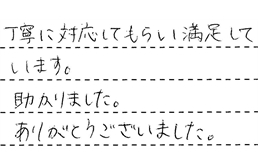 丁寧に対応してもらい満足して
います。
助かりました。
ありがとうございました。